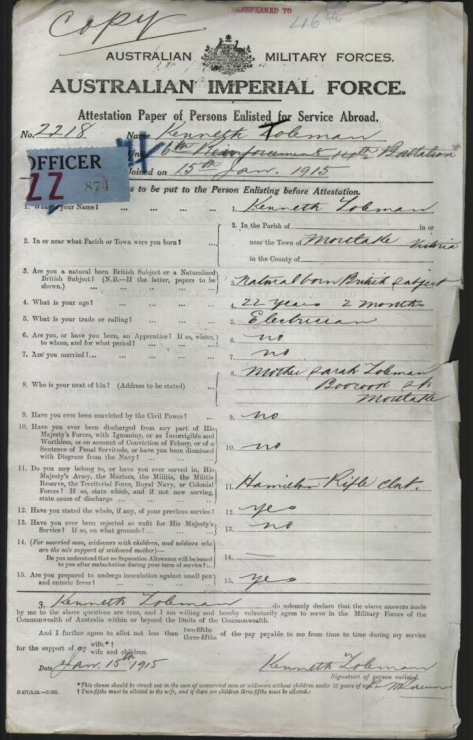 Copy
TRANSFERRED TO
46th
AUSTRALIAN MILITARY FORCES.
AUSTRALIAN IMPERIAL FORCE.
Attestation Paper of Persons Enlisted for Service Abroad.
No. 2218 Name Kenneth Loleman
Unit 6th Reinforcements 14th Battalion
Joined on 15th Jan. 1915
OFFICER
ZZ 874
to be put to the Person Enlisting before Attestation.
1. What is your Name? ... 1. Kenneth Loleman
2. In or near what Parish or Town were you born? ... 2. In the Parish of in or
near the Town of Mortlake Victoria
in the County of
3. Are you a natural born British Subject or a Naturalized
British Subject? (N.B.—If the latter, papers to be
shown.) 3. Natural born British Subject
4. What is your age? 4. 22 years 2 months
5. What is your trade or calling? 5. Electrician
6. Are you, or have you been, an Apprentice? If so, where,
to whom, and for what period? 6. no
7. Are you married? ... 7. no
8. Who is your next of kin? (Address to be stated) ... 8. Mother Sarah Loleman
St
Mortlake
9. Have you ever been convicted by the Civil Power? ... 9. no
10. Have you ever been discharged from any part of His
Majesty's Forces, with Ignominy, or as Incorrigible and
Worthless, or on account of Conviction of Felony, or of a
Sentence of Penal Servitude, or have you been dismissed
with Disgrace from the Navy? 10. no
11. Do you now belong to, or have you ever served in, His
Majesty's Army, the Marines, the Militia, the Militia
Reserve, the Territorial Force, Royal Navy, or Colonial
Forces? If so, state which, and if not now serving,
state cause of discharge 11. Hamilton Rifle Club.
12. Have you stated the whole, if any, of your previous service? 12. yes
13. Have you ever been rejected as unfit for His Majesty's
Service? If so, on what grounds? 13. no
14. (For married men, widowers with children, and soldiers who
are the sole support of widowed mother)—
Do you understand that no Separation Allowance will be issued
to you after embarkation during your term of service? 14. —
15. Are you prepared to undergo inoculation against small pox
and enteric fever? 15. yes
I, Kenneth Loleman do solemnly declare that the above answers made
by me to the above questions are true, and I am willing and hereby voluntarily agree to serve in the Military Forces of the
Commonwealth of Australia within or beyond the limits of the Commonwealth.
And I further agree to allot not less than two-fifths three-fifths of the pay payable to me from time to time during my service
for the support of my wife.*† wife and children.
Date Jan. 15th 1915 Kenneth Loleman
Signature of person enlisted.
* This clause should be struck out in the case of unmarried men or widowers without children under 18 years of age.
† Two-fifths must be allotted to the wife, and if there are children three-fifths must be allotted.